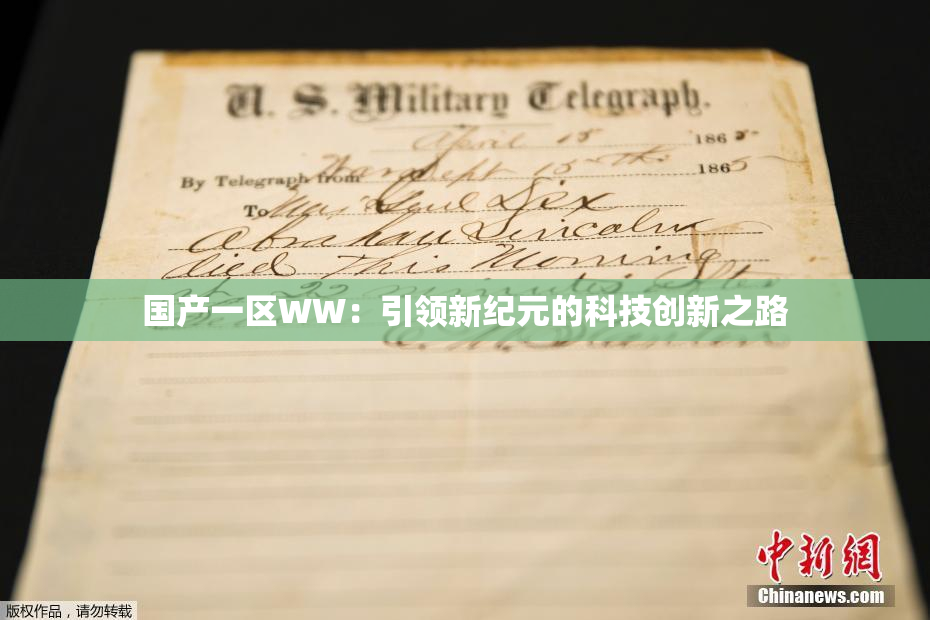 U. S. Military Telegraph.
April 15 1865
By Telegraph from War Dept 15th 1865
To Maj Genl Dix
Abraham Lincoln
died This Morning
at 22 minutes after
国产一区WW：引领新纪元的科技创新之路
E. M. Stanton
中新网
Chinanews.com
版权作品，请勿转载